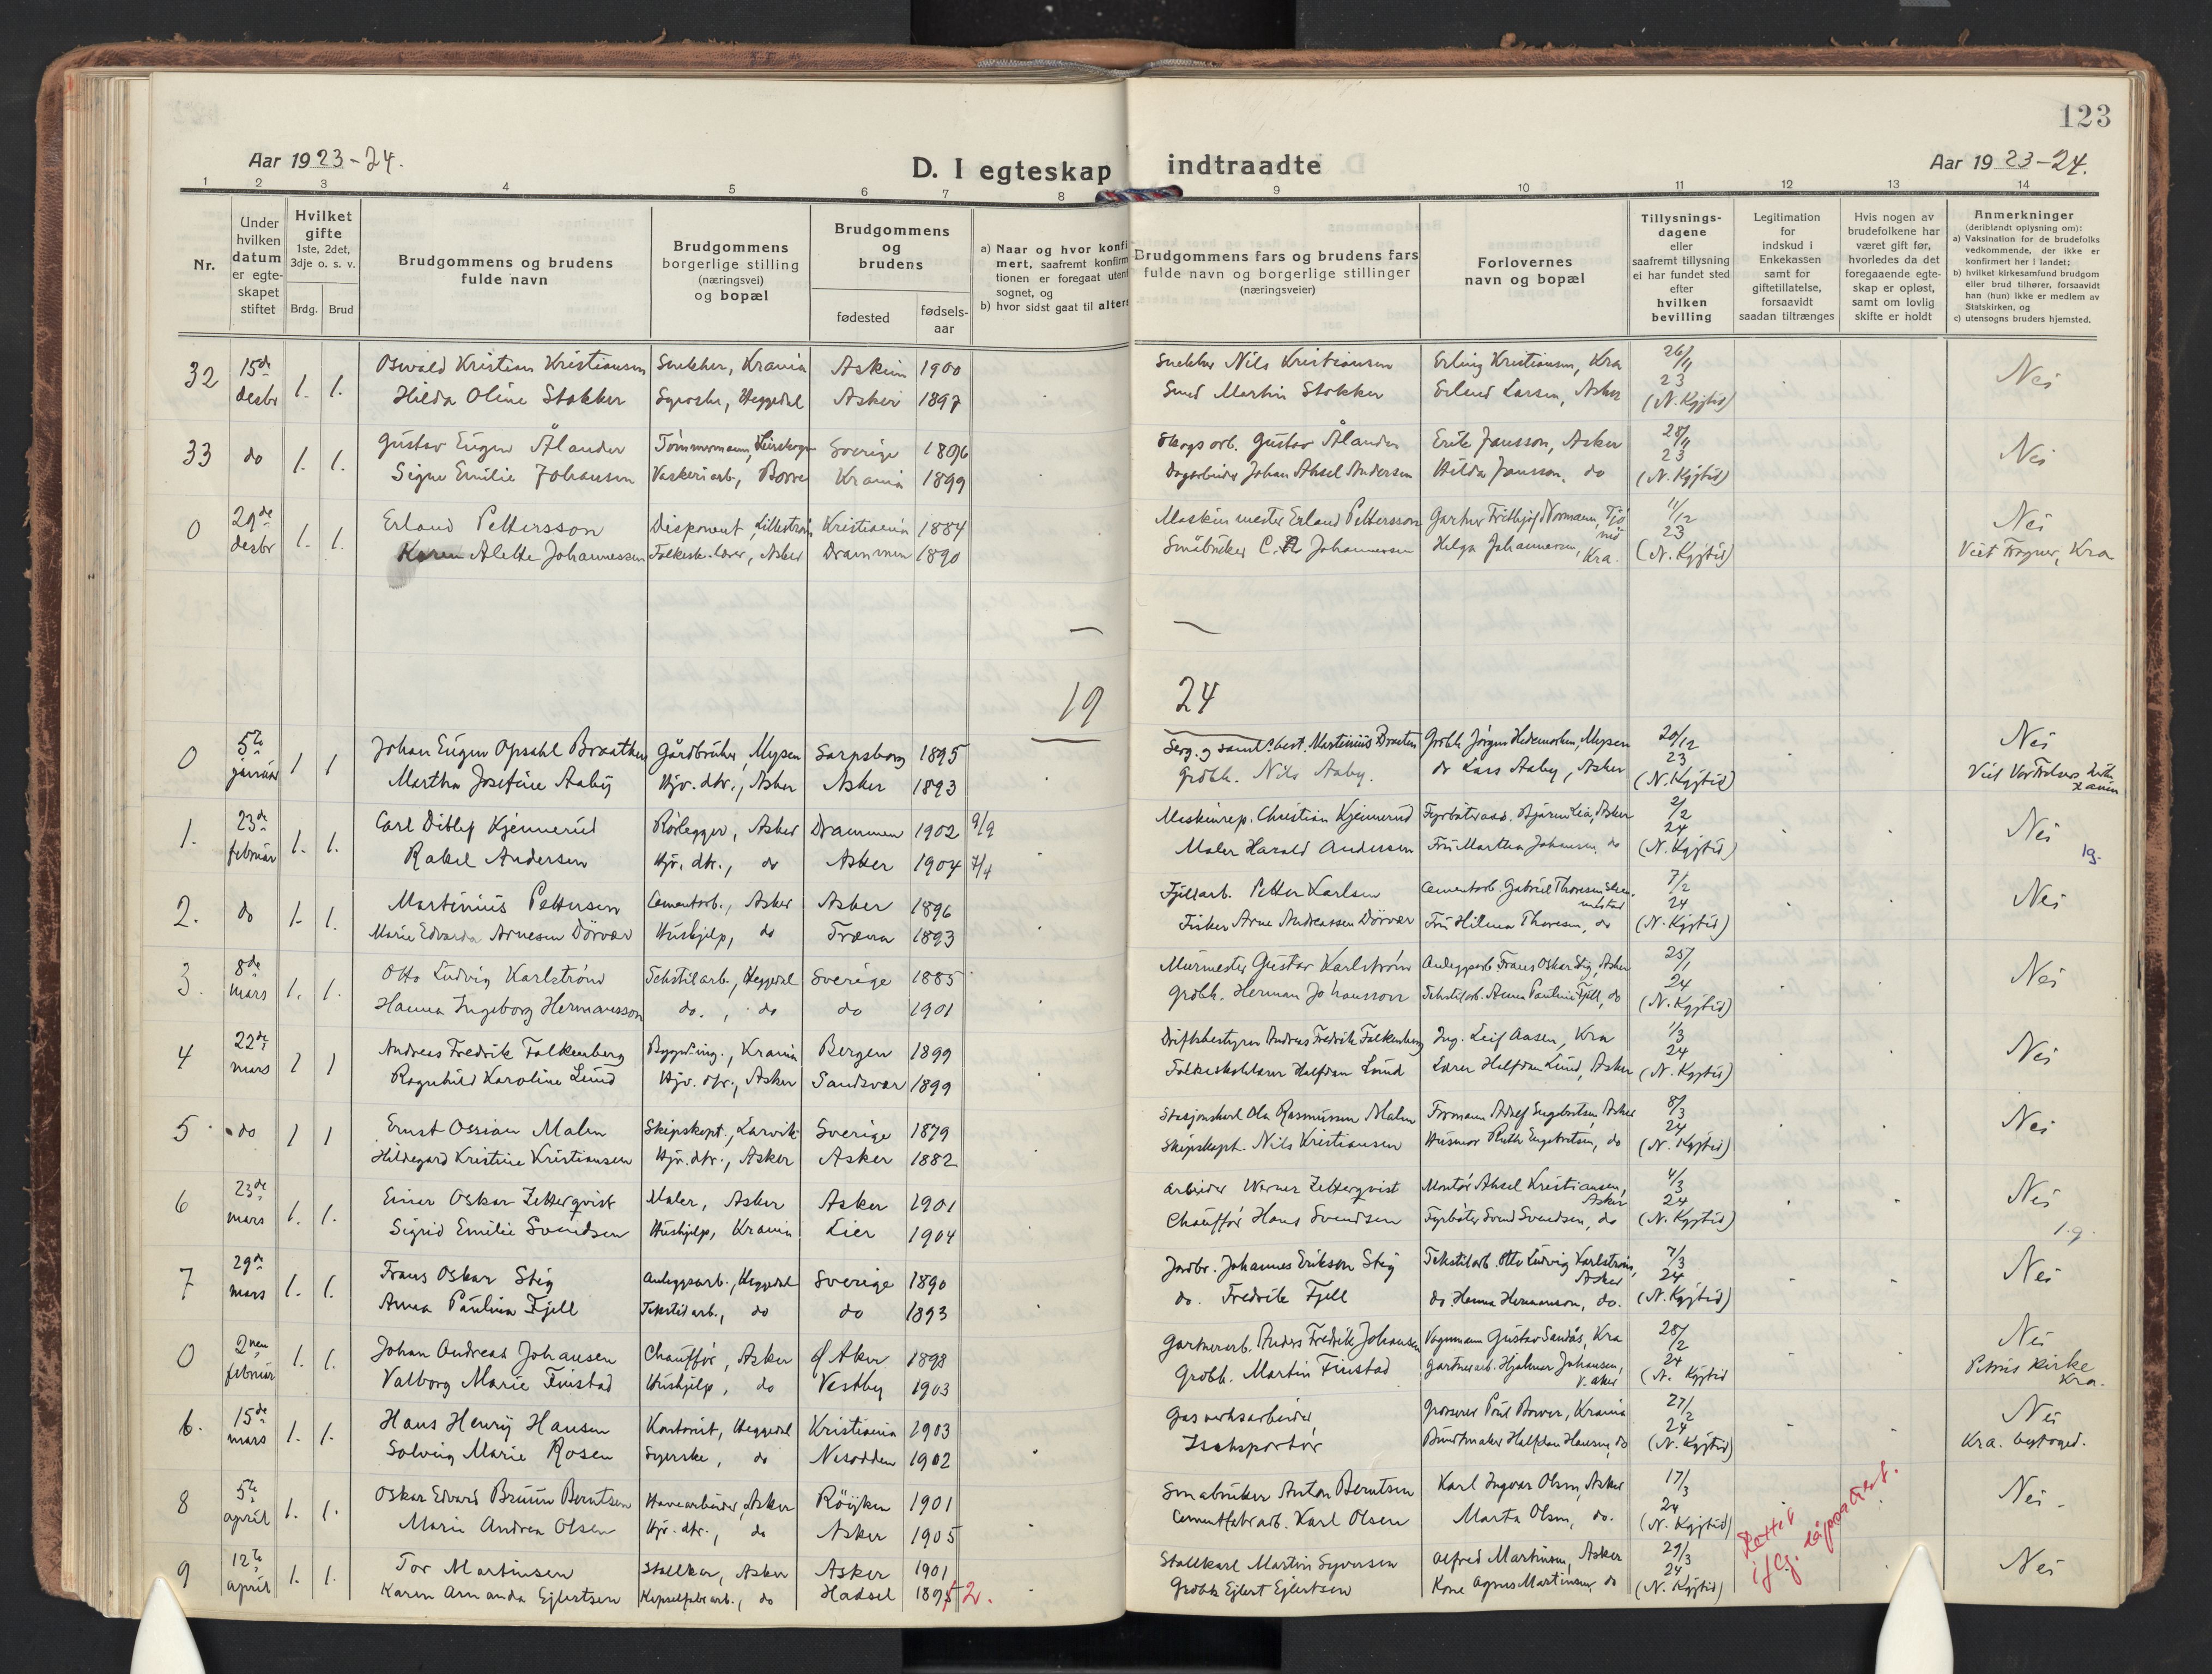 123
Aar 1923-24.
D. I egteskap indtraadte
Aar 1923-24.
1 2 3 4 5 6 7 8 9 10 11 12 13 14
Nr.
Under hvilken datum er egteskapet stiftet
Hvilket gifte 1ste, 2det, 3dje o. s. v.
Brdg. Brud
Brudgommens og brudens fulde navn
Brudgommens borgerlige stilling (næringsvei) og bopæl
Brudgommens og brudens
fødested
fødsels-aar
a) Naar og hvor konfi
mert, saafremt konfirm
tionen er foregaat uten
sognet, og
b) hvor sidst gaat til alters
Brudgommens fars og brudens fars fulde navn og borgerlige stillinger (næringsveier)
Forlovernes navn og bopæl
Tillysnings-dagene eller saafremt tillysning ei har fundet sted efter hvilken bevilling
Legitimation for indskud i Enkekassen samt for giftetillatelse, forsaavidt saadan tiltrænges
Hvis nogen av brudefolkene har været gift før, hvorledes da det foregaaende egteskap er opløst, samt om lovlig skifte er holdt
Anmerkninger (deriblandt oplysning om):
a) Vaksination for de brudefolks vedkommende, der ikke er konfirmert her i landet;
b) hvilket kirkesamfund brudgom eller brud tilhører, forsaavidt han (hun) ikke er medlem av Statskirken, og
c) utensogns bruders hjemsted.
32 15de desbr 1. 1. Osvald Kristian Kristiansen Snekker, Krania Askim 1900 Snekker Nils Kristiansen Erling Kristiansen, Kra 26/11 23 Nei
Hilda Oline Stokker Syerske, Heggedal Asker 1897 Smed Martin Stokker Erlend Larsen, Asker (N. Kgjtid)
33 do 1. 1. Gustav Eugen Ålander Tömmermann, Sverige 1896 Skogsarb. Gustav Ålander Erik Jansson, Asker 28/11 23 Nei
Signe Emilie Johansen Vaskeriarb., Borre Krania 1899 Dagarbeider Johan Aksel Andersen Hilda Jansson, do (N. Kgjtid)
0 29de desbr 1. 1. Erland Pettersson Disponent, Lilleström Kristiania 1884 Maskinmester Erland Pettersson Gartner Frithjof Normann, 11/12 23 Nei
Karen Alette Johannessen Folkesk.lærer, Asker Drammen 1890 Småbruker C. Johannessen Helga Johannessen, Kra. (N. Kgjtid) Viet Frogner, Kra
19 24
0 5te januar 1 1 Johan Eugen Opsahl Braathen Gårdbruker, Mysen Sarpsborg 1895 Martinius Braaten Grdbr. Jörgen Hedemarken, Mysen 20/12 23 Nei
Martha Josefine Aaby Hjv. dtr., Asker Asker 1893 Grdbr. Nils Aaby. do Lars Aaby, Asker (N. Kgjtid) Viet Vor Frelsers kirke
1. 23de februar 1. 1. Carl Ditlef Kjennerud Rörlegger, Asker Drammen 1902 9/9 Maskinrep. Christian Kjennerud Fyrböterass. Bjarne Lia, Asker 2/2 24 Nei
Rakel Andersen Hjv. dtr., do Asker 1904 7/4 Maler Harald Andersen Fru Martha Johansen, do (N. Kgjtid) 19.
2. do 1. 1. Martinius Pettersen Cementarb., Asker Asker 1896 Fjellarb. Petter Karlsen Cementarb. Gabriel Thoresen 7/2 24 Nei
Marie Edvarda Arnesen Dörvær Hushjelp, do Træna 1893 Fisker Arne Andreassen Dörvær Fru Hilma Thoresen, do (N. Kgjtid)
3. 8de mars 1. 1. Otto Ludvig Karlström Tekstilarb., Heggedal Sverige 1885 Murmester Gustav Karlström Anleggsarb. Frans Oskar Stig, Asker 25/1 24 Nei
Hanna Ingeborg Hermansson do., do do 1901 Grdbr. Herman Johansson Tekstilarb. Anna Paulina Fjell, do (N. Kgjtid)
4 22de mars 1 1 Andreas Fredrik Falkenberg Bygn.ing., Krania Bergen 1899 Driftsbestyrer Andreas Fredrik Falkenberg Ing. Leif Aasen, Kra 1/3 24 Nei
Ragnhild Karoline Lund Hjv. dtr., Asker Sandsvær 1899 Folkeskolelærer Halfdan Lund Lærer Halfdan Lund, Asker (N. Kgjtid)
5 do 1 1 Ernst Ossian Malm Skipskapt., Larvik Sverige 1879 Stasjonskarl Ola Rasmussen Malm Formann Adolf Engebretsen, Asker 8/3 24 Nei
Hildegard Kristine Kristiansen Hjv. dtr., Asker Asker 1882 Skipskapt. Nils Kristiansen Husmor Ruth Engebretsen, do (N. Kgjtid)
6 23de mars 1. 1. Einar Oskar Zetterqvist Maler, Asker Asker 1901 Arbeider Werner Zetterqvist Montör Aksel Kristiansen, Asker 4/3 24 Nei
Sigrid Emilie Svendsen Hushjelp, Krania Lier 1904 Chaufför Hans Svendsen Fyrböter Svend Svendsen, do (N. Kgjtid) 1.g.
7 29de mars 1. 1. Frans Oskar Stig Anleggsarb., Heggedal Sverige 1890 Jordbr. Johannes Erikson Stig Tekstilarb. Otto Ludvig Karlström, Asker 7/3 24 Nei
Anna Paulina Fjell Tekstilarb., do do 1893 do. Fredrik Fjell do. Hanna Hermansson, do. (N. Kgjtid)
0 2nen februar 1. 1. Johan Andreas Johansen Chaufför, Asker Aker 1898 Gartnerarb. Anders Fredrik Johansen Vognmann Gustav Sandås, Kra 28/2 24 Nei
Valborg Marie Finstad Hushjelp, do Vestby 1903 Grdbr. Martin Finstad Gartnerarb. Hjalmar Johansen, V. Aker (N. Kgjtid Petrus kirke Kra.
6. 15de mars 1. 1. Hans Henry Hansen Kontorist, Heggedal Kristiania 1903 Gasverksarbeider Grosserer Poul Krania 27/2 24 Nei
Solveig Marie Rosen Syerske, do Nesodden 1902 Iseksportör Buntmaker Halfdan Hansen, do (N. Kgjtid) Kra. byfoged.
8 5te april 1. 1. Oskar Edvard Bruun Berntsen Havearbeider, Asker Röyken 1901 Småbruker Anton Berntsen Karl Ingvar Olsen, Asker 17/3 24 Nei
Marie Andrea Olsen Hjv. dtr., do Asker 1905 Cementfabrarb. Karl Olsen Marta Olsen, do. (N. Kgjtid)
9 12te april 1. 1. Tor Martinsen Stallkar, Asker Asker 1901 Stallkarl Martin Syversen Alfred Martinsen, Asker 29/3 24 Nei
Karen Amanda Ejlertsen Kapselfabrarb., do Hadsel 1895 2. Grdbr. Ejlert Ejlertsen Kone Agnes Martinsen, do (N. Kgjtid)
Rettet iflg. dåpsattest.